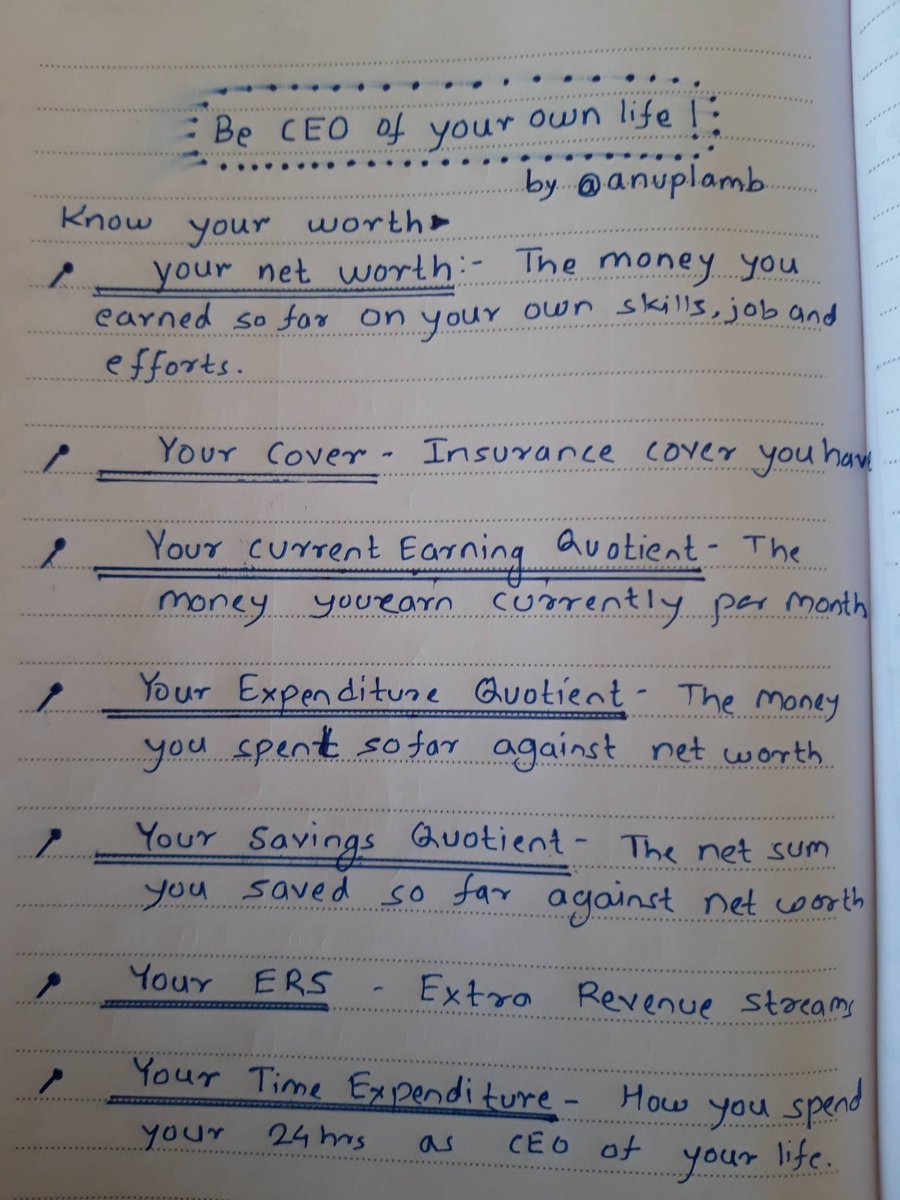 Be CEO of your own life!
by @anuplamb
Know your worth
your net worth:- The money you
earned so far on your own skills, job and
efforts.
Your Cover - Insurance cover you have
Your current Earning Quotient - The
money you earn currently per month
Your Expenditure Quotient - The money
you spent so far against net worth
Your Savings Quotient - The net sum
you saved so far against net worth
Your ERS - Extra Revenue Streams
Your Time Expenditure - How you spend
your 24 hrs as CEO of your life.